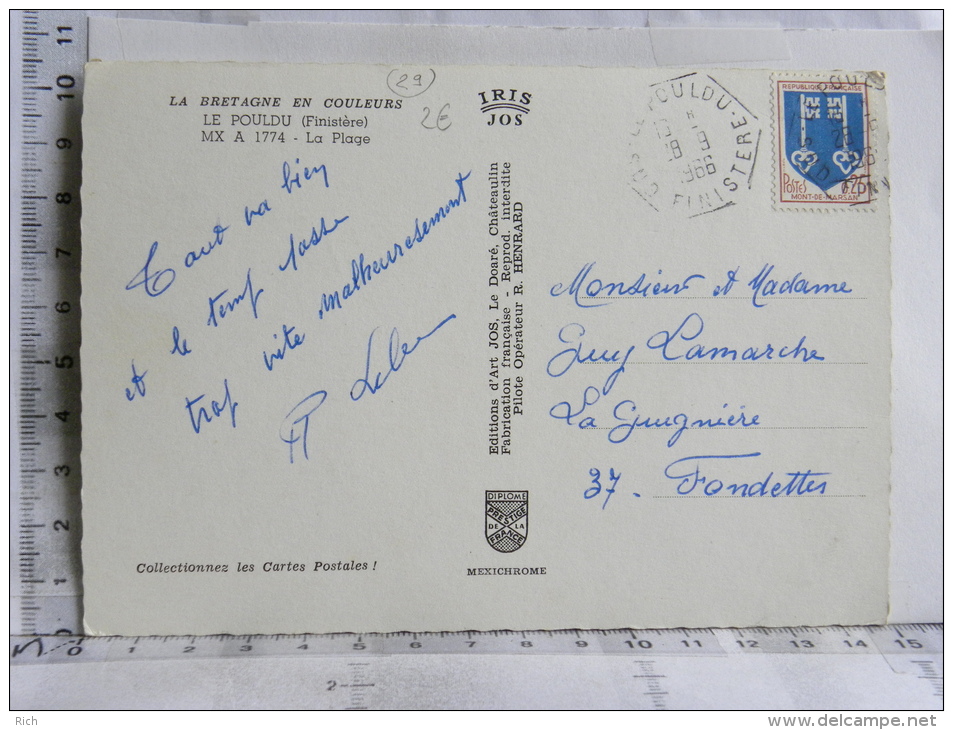 (29)
2€
LA BRETAGNE EN COULEURS
LE POULDU (Finistère)
MX A 1774 - La Plage
IRIS
JOS
LE POULDU
FINISTERE
1966
REPUBLIQUE FRANÇAISE
POSTES
0,25F
MONT-DE-MARSAN
Tout va bien
et le temps passe
trop vite malheureusement
Editions d'Art JOS, Le Doaré, Châteaulin
Fabrication française - Reprod. interdite
Pilote Opérateur R. HENRARD
Monsieur et Madame
Guy Lamarche
La Guignière
37 - Fondettes
DIPLOME
PRESTIGE
DE LA
FRANCE
MEXICHROME
Collectionnez les Cartes Postales !
11
10
9
8
7
6
5
4
3
2
1
0
0 1 2 3 4 5 6 7 8 9 10 11 12 13 14 15
Rich
delcampe.net